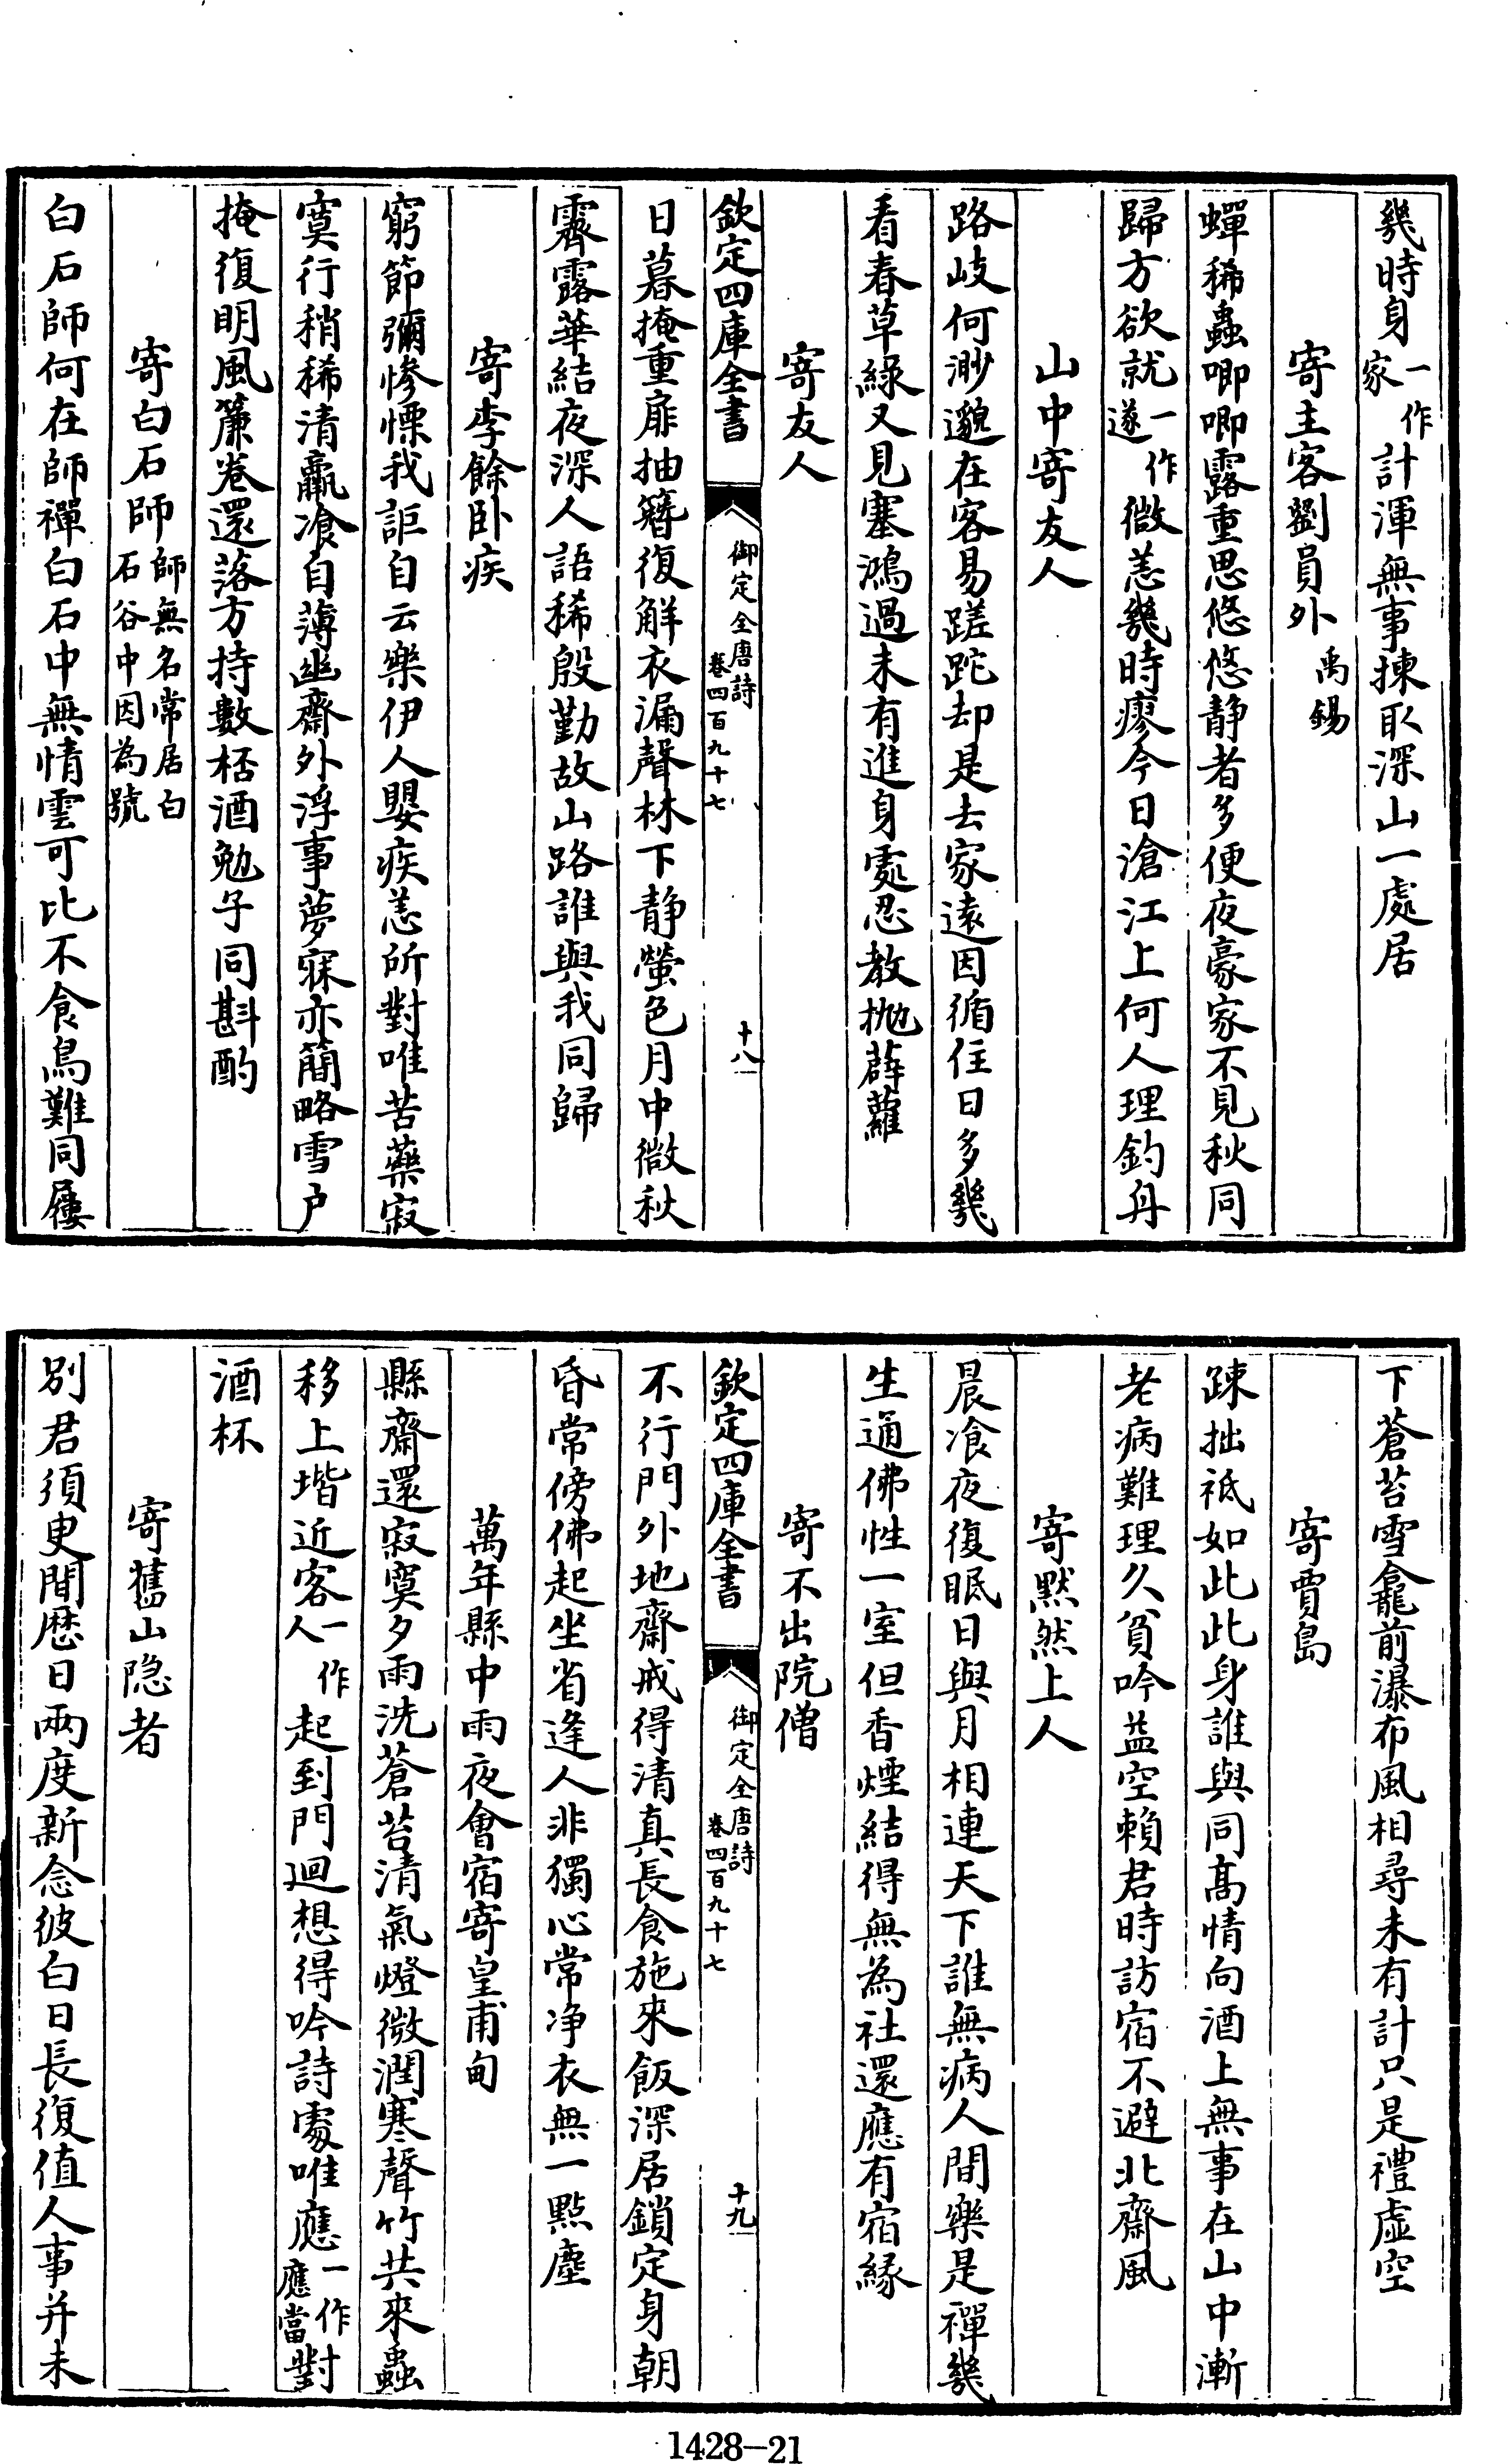 幾時身一作家計渾無事揀取深山一處居
寄主客劉員外禹錫
蟬稀蟲唧唧露重思悠悠静者多便夜豪家不見秋同
歸方欲就一作遂微恙幾時瘳今日滄江上何人理釣舟
山中寄友人
路岐何渺邈在客易蹉跎却是去家遠因循住日多幾
看春草綠又見塞鴻過未有進身處忍教抛薜蘿
寄友人
欽定四庫全書
御定全唐詩
卷四百九十七
十八
日暮掩重扉抽簪復解衣漏聲林下静螢色月中微秋
霽露華結夜深人語稀殷勤故山路誰與我同歸
寄李餘卧疾
窮節彌慘慄我詎自云樂伊人嬰疾恙所對唯苦藥寂
寞行稍稀清羸飡自薄幽齋外浮事夢寐亦簡略雪户
掩復明風簾卷還落方持數桮酒勉子同斟酌
寄白石師師無名常居白石谷中因為號
白石師何在師禪白石中無情雲可比不食鳥難同屨
下蒼苔雪龕前瀑布風相尋未有計只是禮虛空
寄賈島
踈拙祗如此此身誰與同高情向酒上無事在山中漸
老病難理久貧吟益空賴君時訪宿不避北齋風
寄默然上人
晨飡夜復眠日與月相連天下誰無病人間樂是禪幾
生通佛性一室但香煙結得無為社還應有宿縁
寄不出院僧
欽定四庫全書
御定全唐詩
卷四百九十七
十九
不行門外地齋戒得清真長食施來飯深居鎖定身朝
昏常傍佛起坐省逢人非獨心常净衣無一點塵
萬年縣中雨夜會宿寄皇甫甸
縣齋還寂寞夕雨洗蒼苔清氣燈微潤寒聲竹共來蟲
移上堦近客一作人起到門迴想得吟詩處唯應一作應當對
酒杯
寄舊山隐者
別君須臾間歴日兩度新念彼白日長復值人事并未
1428-21